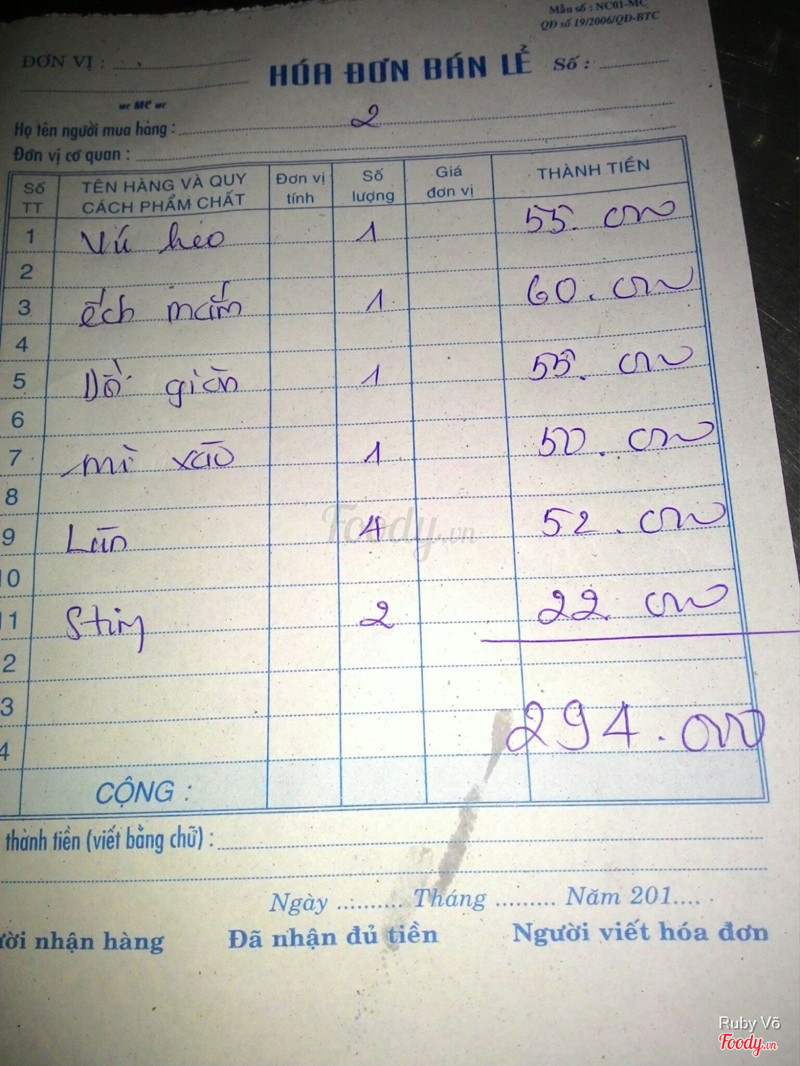 Mẫu số : NC01-MC
QĐ số 19/2006/QĐ-BTC
ĐƠN VỊ :
HÓA ĐƠN BÁN LẺ Số :
MC
Họ tên người mua hàng : 2
Đơn vị cơ quan :
Số TT TÊN HÀNG VÀ QUY CÁCH PHẨM CHẤT Đơn vị tính Số lượng Giá đơn vị THÀNH TIỀN
1 Vú heo 1 55.000
2
3 ếch mắm 1 60.000
4
5 Dồ giàn 1 55.000
6
7 mì xào 1 50.000
8
9 Lùn 4 52.000
10
11 Sting 2 22.000
2
3 294.000
4
CỘNG :
thành tiền (viết bằng chữ) :
Ngày ........ Tháng ......... Năm 201....
ười nhận hàng Đã nhận đủ tiền Người viết hóa đơn
Foody.vn
Ruby Võ
Foody.vn